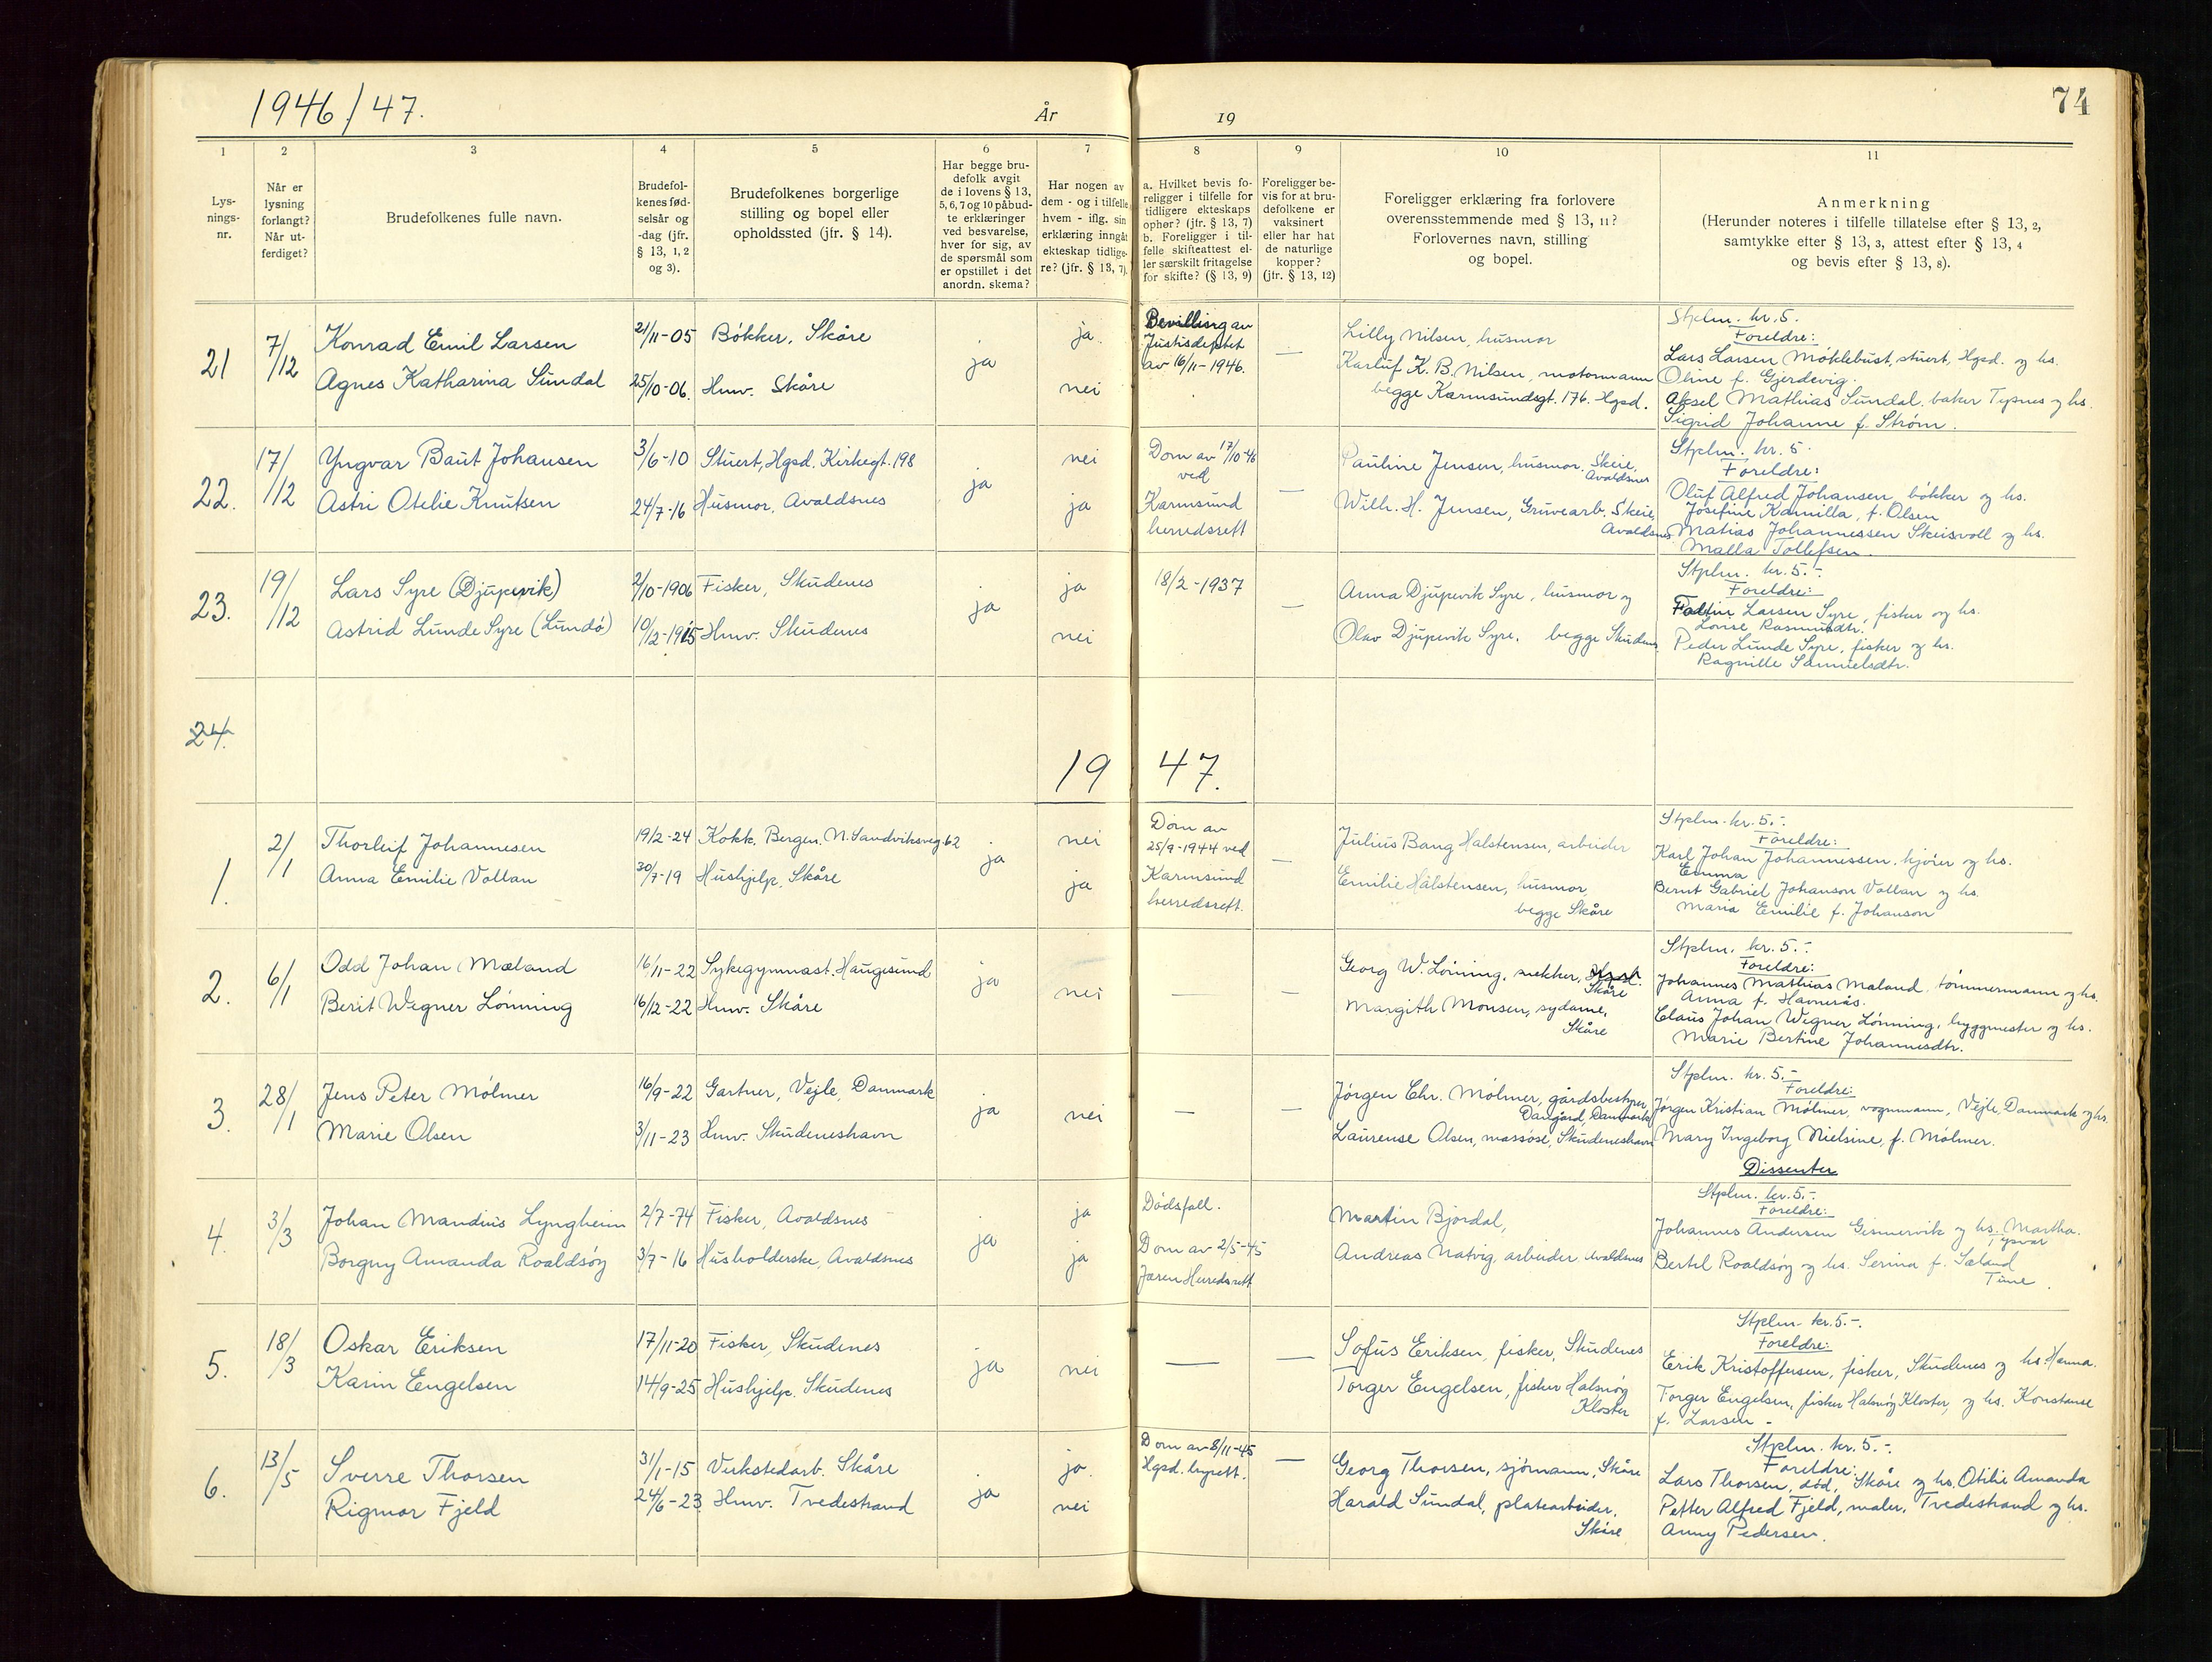 1946/47.
År
19
74
1
2
3
4
5
6
7
8
9
10
11
Lys-
nings-
nr.
Når er
lysning
forlangt?
Når ut-
ferdiget?
Brudefolkenes fulle navn.
Brudefol-
kenes fød-
selsår og
-dag (jfr.
§ 13, 1, 2
og 3).
Brudefolkenes borgerlige
stilling og bopel eller
opholdssted (jfr. § 14).
Har begge bru-
defolk avgit
de i lovens § 13,
5, 6, 7 og 10 påbud-
te erklæringer
ved besvarelse,
hver for sig, av
de spørsmål som
er opstillet i det
anordn. skema?
Har nogen av
dem - og i tilfelle
hvem - iflg. sin
erklæring inngåt
ekteskap tidlige-
re? (jfr. § 13, 7).
a. Hvilket bevis fo-
religger i tilfelle for
tidligere ekteskaps
ophør? (jfr. § 13, 7)
b. Foreligger i til-
felle skifteattest el-
ler særskilt fritagelse
for skifte? (§ 13, 9)
Foreligger be-
vis for at bru-
defolkene er
vaksinert
eller har hat
de naturlige
kopper?
(jfr. § 13, 12)
Foreligger erklæring fra forlovere
overensstemmende med § 13, 11?
Forlovernes navn, stilling
og bopel.
Anmerkning
(Herunder noteres i tilfelle tillatelse efter § 13, 2,
samtykke efter § 13, 3, attest efter § 13, 4
og bevis efter § 13, 8).
21
7/12
Konrad Emil Larsen
Agnes Katharina Sundal
21/11-05
25/10-06.
Bøkker, Skåre
Hmv. Skåre
ja
ja.
nei
Bevilling av
Justisdeptet
av 16/11-1946.
—
Lilly Nilsen, husmor
Karluf K. B. Nilsen, motormann
begge Karmsundsgt. 176. Hgsd.
Stplm. kr. 5.
Foreldre:
Lars Larsen Møklebust, stuert, Hgsd. og hs.
Oline f. Gjerdevig.
Aksel Mathias Sundal, baker Typnes og hs.
Sigrid Johanne f. Strøm.
22.
17/12
Yngvar Baut Johansen
Astri Otelie Knutsen
3/6-10
24/7-16
Stuert, Hgsd. Kirkegt. 198
Husmor, Avaldsnes
ja
nei
ja
Dom av 17/10-46
ved
Karmsund
herredsrett
—
Pauline Jensen, husmor. Skeie,
Avaldsnes
Wilh. H. Jensen, Gruvearb. Skeie
Avaldsnes
Stplm. kr. 5.
Foreldre:
Oluf Alfred Johansen, bøkker og hs.
Josefine Kamilla, f. Olsen
Matias Johannessen Skeisvoll og hs.
Malla Tollefsen.
23.
19/12
Lars Syre (Djupevik)
Astrid Lunde Syre (Lundö)
2/10-1906
10/2-1915
Fisker, Skudenes
Hmv. Skudenes
ja
ja
nei
18/2-1937
—
Anna Djupevik Syre, husmor og
Olav Djupevik Syre, begge Skudenes.
Stplm. kr. 5.-
Foreldre:
Larsen Syre, fisker og hs.
Lovise Rasmusdtr.
Peder Lunde Syre, fisker og hs.
Ragnille Samuelsdtr.
24.
1947.
1.
2/1
Thorleif Johannesen
Anna Emilie Vollan
19/2-24
30/7-19
Kokk, Bergen. N. Sandviksveg. 62
Hushjelp, Skåre
ja
nei
ja
Dom av
25/9-1944 ved
Karmsund
herredsrett.
—
Julius Bang Halstensen, arbeider
Emilie Halstensen, husmor,
begge Skåre
Stplm. kr. 5.-
Foreldre:
Karl Johan Johannessen, kjører og hs.
Emma
Bernt Gabriel Johanson Vollan og hs.
Maria Emilie f. Johanson
2.
6/1
Odd Johan Mæland
Berit Wegner Lønning
16/11-22
16/12-22
Sykegymnast. Haugesund
Hmv. Skåre
ja
nei
—
—
Georg W. Lönning, snekker, Hgsd.
Skåre
Margith Monsen, sydame,
Skåre
Stplm. kr. 5.-
Foreldre:
Johannes Mathias Mæland, tömmermann og hs.
Anna f. Havnerås.
Claus Johan Wegner Lönning, byggmester og hs.
Marie Bertine Johannesdtr.
3.
28/1
Jens Peter Mölmer
Marie Olsen
16/9-22
3/11-23
Gartner, Vejle, Danmark
Hmv. Skudeneshavn
ja
nei
—
—
Jörgen Chr. Mölmer, gårdsbestyrer,
Dangård, Danmark
Laurense Olsen, massöse, Skudeneshavn
Stplm. kr. 5.-
Foreldre:
Jörgen Kristian Mölmer, vognmann, Vejle, Danmark og hs.
Mary Ingeborg Nielsine, f. Mölmer.
Dissenter
4.
3/3
Johan Mandius Lyngheim
Borgny Amanda Roaldsøy
2/7-74
3/7-16
Fisker, Avaldsnes
Husholderske, Avaldsnes
ja
ja
ja
Dødsfall.
Dom av 2/5-45
Jæren Herredsrett
Martin Bjordal,
Andreas Natvig, arbeider Avaldsnes
Stplm. kr. 5.-
Foreldre:
Johannes Andersen Gismervik og hs. Martha.
Tysvær
Bertel Roaldsøy og hs. Serina f. Sæland
Time.
5.
18/3
Oskar Eriksen
Karin Engelsen
17/11-20
14/9-25
Fisker, Skudenes
Hushjelp. Skudenes
ja
nei
—
—
Sofus Eriksen, fisker, Skudenes
Torger Engelsen, fisker Halsnøy
Kloster
Stplm. kr. 5.-.
Foreldre:
Erik Kristoffersen, fisker, Skudenes og hs. Hanna.
Torger Engelsen, fisker Halsnøy Kloster, og hs. Konstanse
f. Larsen -
6.
13/5
Sverre Thorsen
Rigmor Fjeld
31/1-15
24/6-23
Verkstedarb. Skåre
Hmv. Tvedestrand
ja
ja.
nei
Dom av 8/11-45
Hgsd. byrett.
—
Georg Thorsen, sjömann, Skåre
Harald Sundal, platearbeider,
Skåre
Stplm. kr. 5.-.
Foreldre:
Lars Thorsen, död, Skåre og hs. Otilie Amanda
Petter Alfred Fjeld, maler, Tvedestrand og hs.
Anny Pedersen.